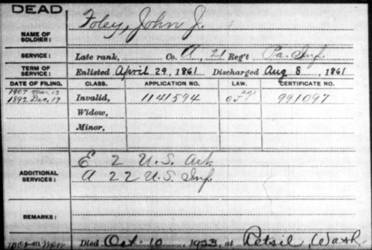 DEAD
NAME OF SOLDIER: Foley, John J.
SERVICE: Late rank, Co. A, 21 Reg't Pa. Inf.
TERM OF SERVICE: Enlisted April 29, 1861 Discharged Aug 8, 1861
DATE OF FILING. CLASS. APPLICATION NO. LAW. CERTIFICATE NO.
1907
1892 Dec. 17 Invalid, 1141594 991097
Widow,
Minor,
ADDITIONAL SERVICES: E 2 U.S. Art
A 22 U.S. Inf.
REMARKS:
Died Oct 10, 1923, at Retsil, Wash.